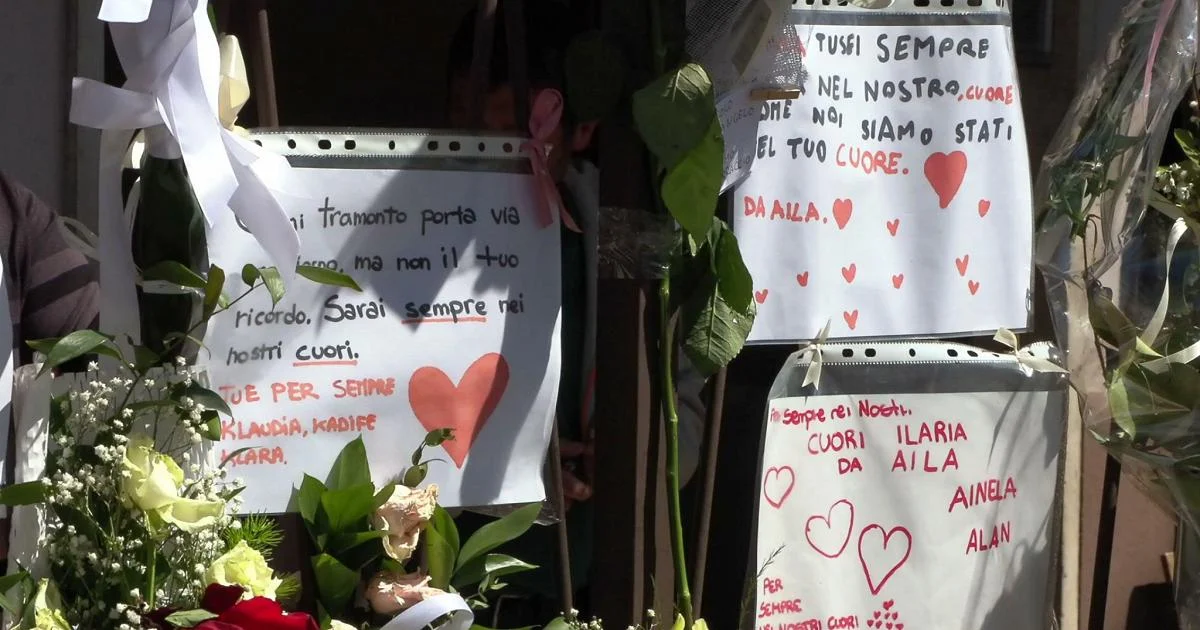 tramonto porta via
ma non il tuo
ricordo. Sarai sempre nei
nostri cuori.
TUE PER SEMPRE
KLAUDIA, KADIFE
KLARA.
TU SEI SEMPRE
NEL NOSTRO, CUORE
OME NOI SIAMO STATI
EL TUO CUORE.
DA AILA.
sempre nei Nostri.
CUORI ILARIA
DA AILA
AINELA
ALAN
PER
SEMPRE
NEI NOSTRI CUORI